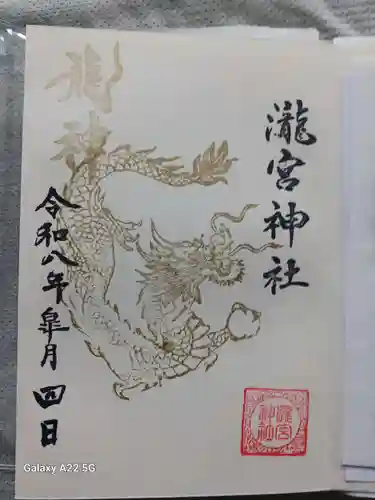 瀧宮神社
龍神
令和八年皐月四日
瀧宮神社
Galaxy A22 5G